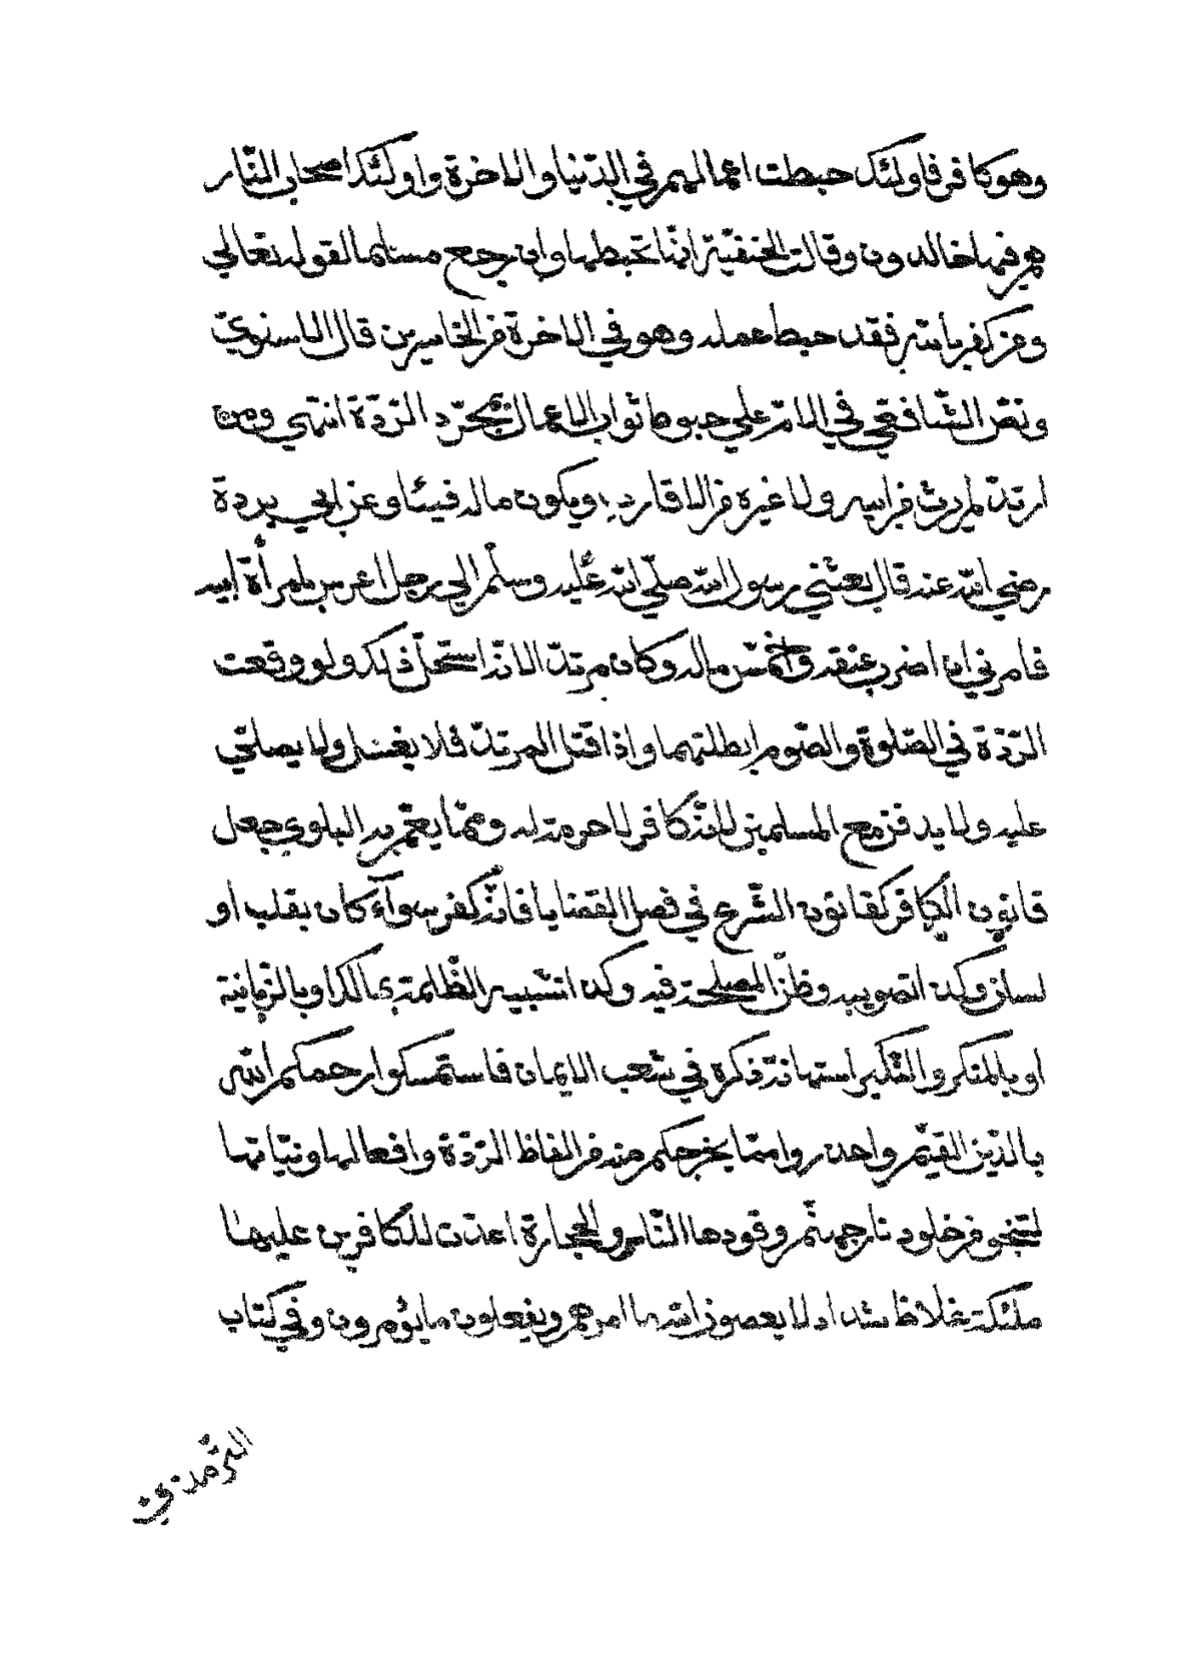 وهو كافر فاولئك حبطت اعمالهم في الدّنيا والاخرة واولئك اصحاب النّار
هم فيها خالدون وقالت الحنفيّة انّما تحبطها وان رجع مسلما لقوله تعالي
ومن كفر بالله فقد حبط عمله وهو في الاخرة من الخاسرين قال الاسنويّ
ونصّ الشّافعيّ في الامّ علي حبوط ثواب الاعمال بمجرّد الرّدّة انتهي ومن
ارتدّ لم يرث من ابيه ولا غيره من الاقارب ويكون ماله فيئا وعن ابي بردة
رضي الله عنه قال بعثني رسول الله صلّي الله عليه وسلّم الي رجل اعرس بامرأة ابيه
فامرني ان اضرب عنقه واخمّس ماله وكان مرتدّا لانّه استحلّ ذلك ولو وقعت
الرّدّة في الصّلوة والصّوم ابطلتهما واذا قتل المرتدّ فلا يغسل ولا يصلّي
عليه ولا يدفن مع المسلمين لانّه كافر لا حرمة له وممّا يعمّ به البلوي جعل
قانون الكافر كقانون الشّرع في فصل القضايا فانّه كفر سوآء كان بقلب او
لسان وكذا تصويبه وظنّ المصلحة فيه وكذا تشبيه الظّلمة بمالك او بالزّبانية
او بالمنكر والنّكير استهانة ذكره في شعب الايمان فاستمسكوا رحمكم الله
بالدّين القيّم واحذروا ممّا يخرجكم منه من الفاظ الرّدّة وافعالها ونيّاتها
لتنجو من خلود نار جهنّم وقودها النّاس والحجارة اعدّت للكافرين عليها
ملئكة غلاظ شداد لا يعصون الله ما امرهم ويفعلون ما يؤمرون وفي كتاب
التّرمذيّ